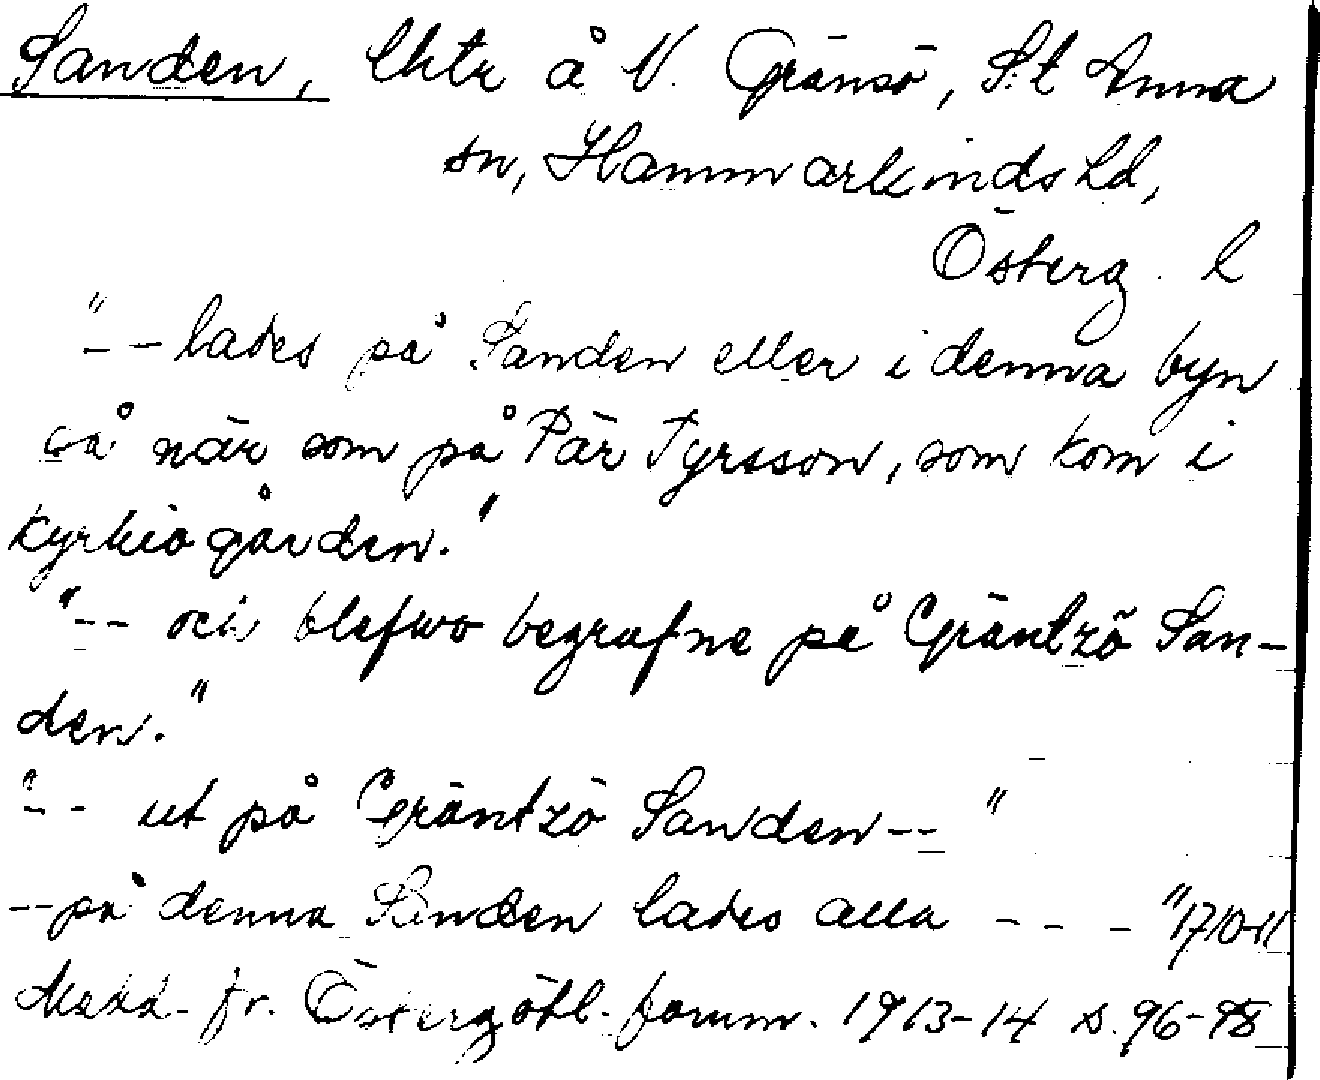 Sanden, lktr å N. Gränsö, S:t Anna
sn, Hammarkinds hd,
Österg. l
"-- lades på Sanden eller i denna byn
så när som på Pär Tyrsson, som kom i
kyrkiogården."
"-- och blefwo begrafne på Gräntzö San-
den."
"-- ut på Gräntzö Sanden -- "
-- på denna Sanden lades alla - - - " 1710-11
Medd. fr. Östergötl. fornm. 1913-14 s. 96-98